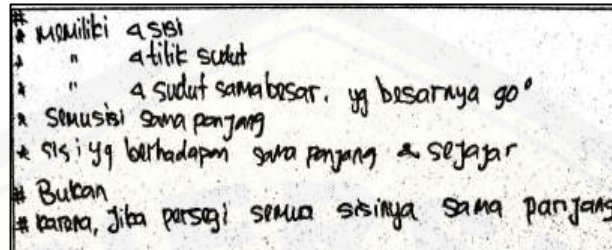 #
* Memiliki 4 sisi
* " 4 titik sudut
* " 4 sudut sama besar. yg besarnya 90°
* Semua sisi sama panjang
* sisi yg berhadapan sama panjang & sejajar
# Bukan
# karena, Jika persegi semua sisinya sama panjang